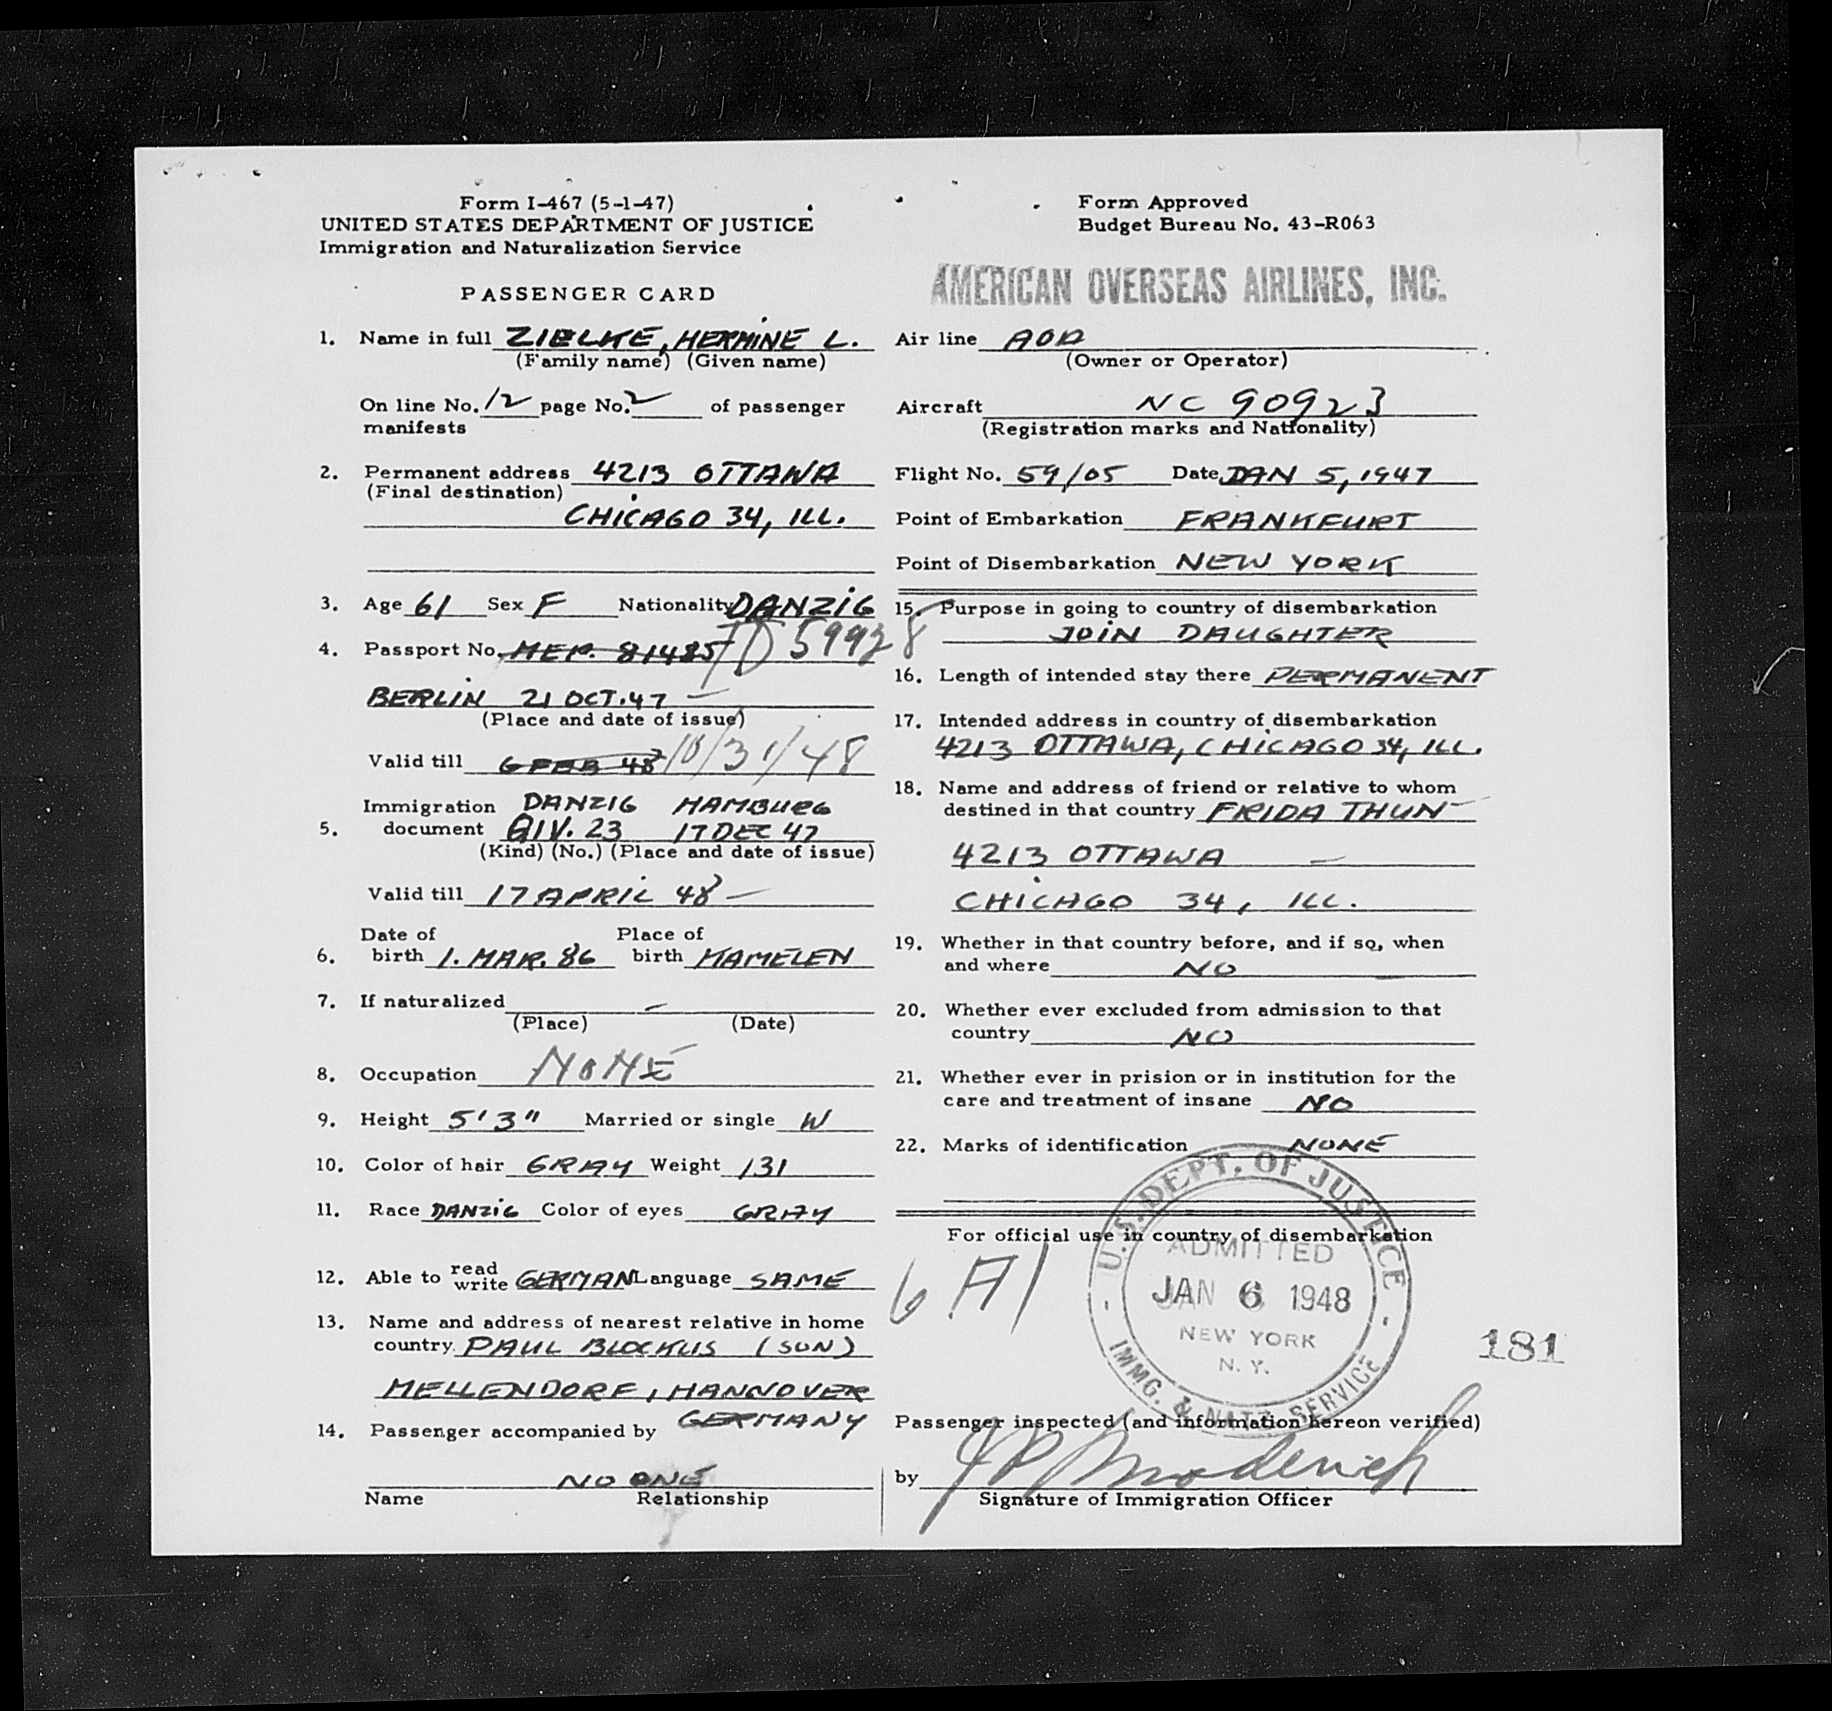 Form I-467 (5-1-47)
UNITED STATES DEPARTMENT OF JUSTICE
Immigration and Naturalization Service
PASSENGER CARD
1. Name in full ZIELKE, HERMINE L.
(Family name) (Given name)
On line No. 12 page No. 2 of passenger
manifests
2. Permanent address 4213 OTTAWA
(Final destination)
CHICAGO 34, ILL.
3. Age 61 Sex F Nationality DANZIG
4. Passport No. 81485 TD 59928
BERLIN 21 OCT. 47 —
(Place and date of issue)
Valid till 6 FEB 48 10/31/48
Immigration DANZIG HAMBURG
5. document QIV. 23 17 DEC 47
(Kind) (No.) (Place and date of issue)
Valid till 17 APRIL 48 —
Date of Place of
6. birth 1. MAR. 86 birth HAMELEN
7. If naturalized –
(Place) (Date)
8. Occupation NONE
9. Height 5'3" Married or single W
10. Color of hair GRAY Weight 131
11. Race DANZIG Color of eyes GRAY
12. Able to read write GERMAN Language SAME
13. Name and address of nearest relative in home
country PAUL BLOCKUS (SON)
MELLENDORF, HANNOVER
GERMANY
14. Passenger accompanied by
NO ONE
Name Relationship
Form Approved
Budget Bureau No. 43-R063
AMERICAN OVERSEAS AIRLINES, INC.
Air line AOA
(Owner or Operator)
Aircraft NC 90923
(Registration marks and Nationality)
Flight No. 59/05 Date JAN 5, 1947
Point of Embarkation FRANKFURT
Point of Disembarkation NEW YORK
15. Purpose in going to country of disembarkation
JOIN DAUGHTER
16. Length of intended stay there PERMANENT
17. Intended address in country of disembarkation
4213 OTTAWA, CHICAGO 34, ILL.
18. Name and address of friend or relative to whom
destined in that country FRIDA THUN
4213 OTTAWA –
CHICAGO 34, ILL.
19. Whether in that country before, and if so, when
and where NO
20. Whether ever excluded from admission to that
country NO
21. Whether ever in prision or in institution for the
care and treatment of insane NO
22. Marks of identification NONE
For official use in country of disembarkation
6 A1
U.S. DEPT. OF JUSTICE
ADMITTED
JAN 6 1948
NEW YORK
N. Y.
IMMG. & NATZ. SERVICE
181
Passenger inspected (and information hereon verified)
by
Signature of Immigration Officer